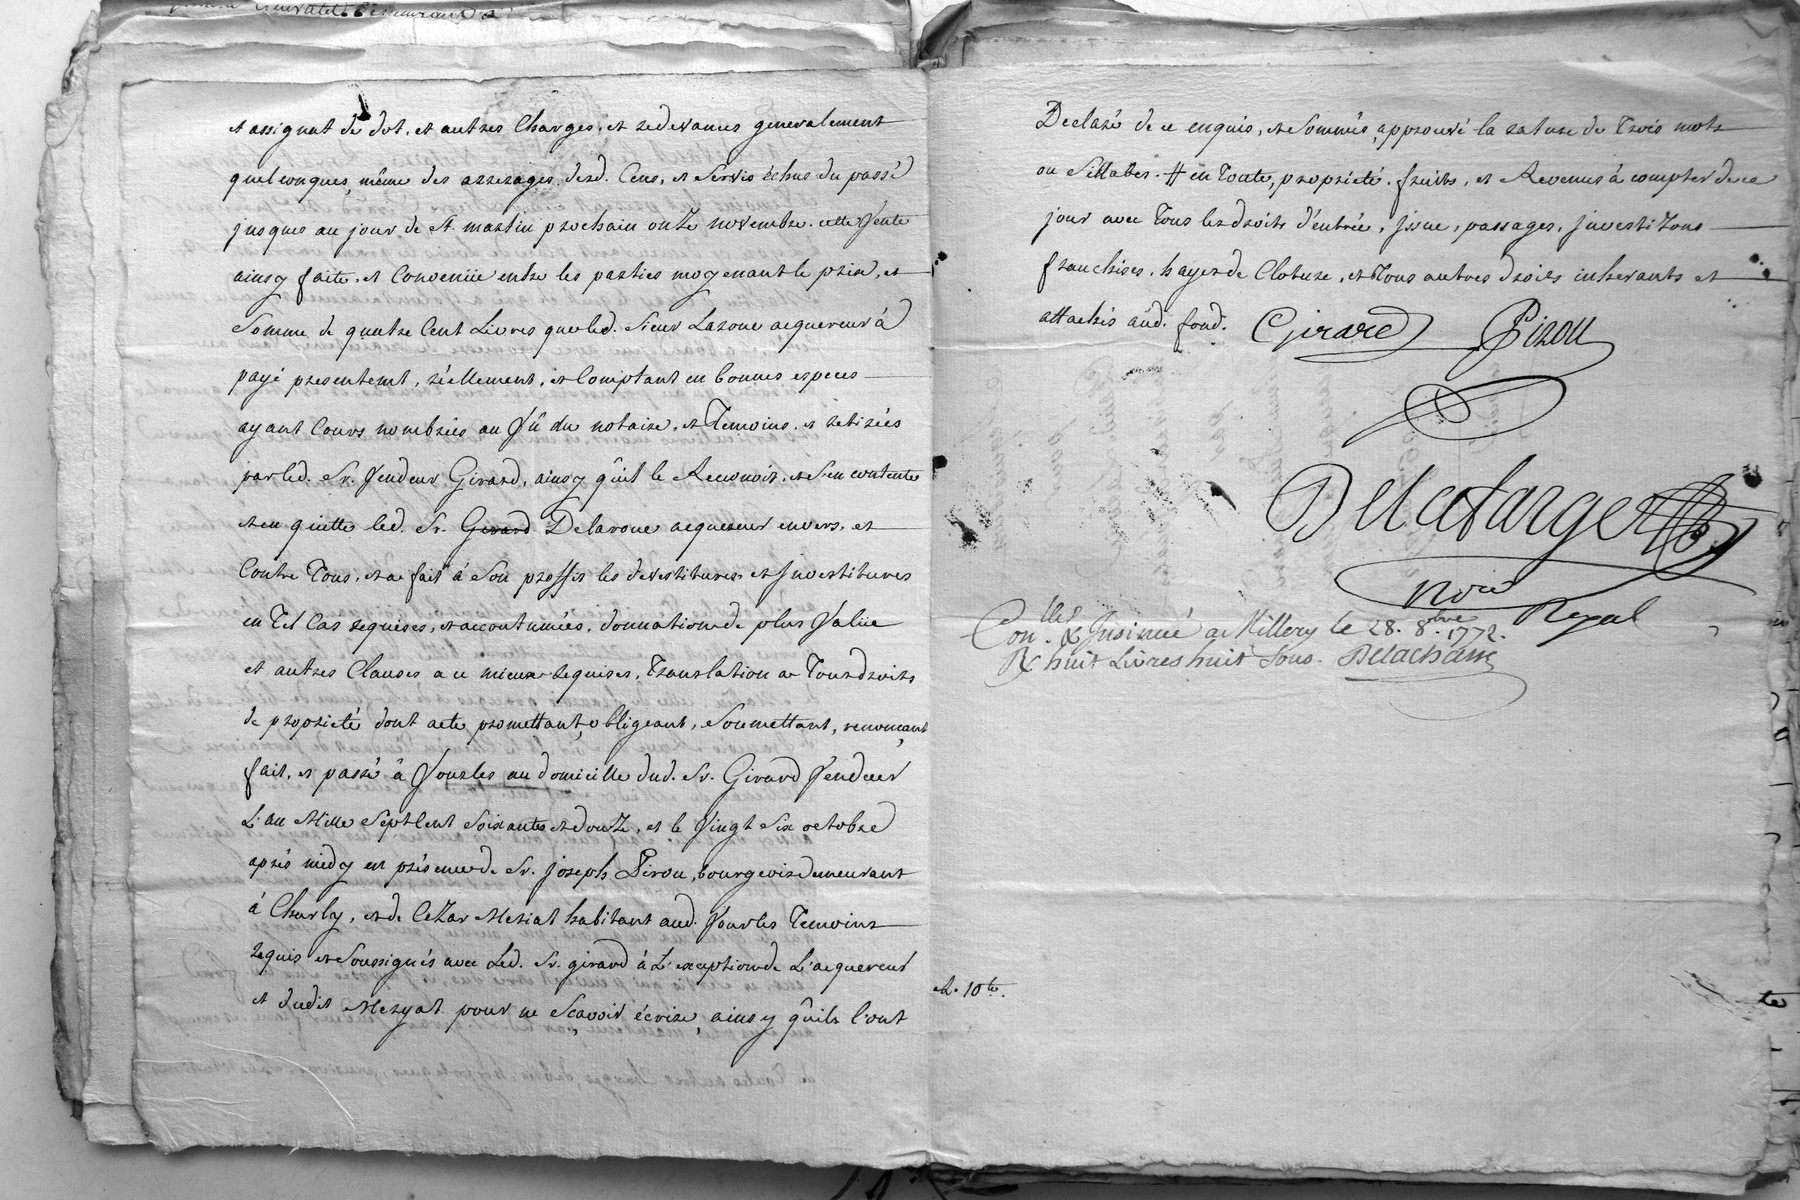 et assignat de dot, et autres Charges, et redevances generalement
quelconques, même des arrerages desd. Cens, et Servis échus du passé
jusques au jour de St. martin prochain onze novembre. cette Vente
ainsy faite, et Convenüe entre les parties moyenant le prix, et
Somme de quatre Cent Livres que led. Sieur Laroue acquereur à
payé presentemt, réellement, et Comptant en bonnes especes
ayant Cours nombrées au Vû du notaire, et Temoins, et retirées
par led. Sr. Vendeur Girard, ainsy qu'il le Reconoit, et s'en contente
et en quitte led. Sr. Gerard Delaroue acquereur envers, et
Contre Tous, et a fait à Son proffit les devestitures et Jnvestitures
en Tel Cas requises, et accoutumées, donnation de plus Valüe
et autres Clauses a ce mieux requises, Translation de Tous droits
de proprieté dont acte promettant, obligeant, Soumettant, renonçant
fait, et passé à Vourles au domicille dud. Sr. Girard Vendeur
L'an Mille Sept Cent Soixante et douze, et le Vingt Six octobre
aprés midy en présence de Sr. Joseph Pirou, bourgeois demeurant
à Charly, et de Cezar Meziat habitant aud. Vourles Temoins
requis et Soussignés avec Led. Sr. girard à L'exception de L'acquereur
et dudit Mezyat pour ne Scavoir écrire, ainsy qu'ils l'ont
Declaré de ce enquis, et Sommés, approuvé la rature de Trois mots
ou Sillabes. # en Toute, proprieté, fruits, et Revenus à compter de ce
jour avec Tous les droits d'entrée, Jssue, passages, Jnvestizons
franchises, hayes de Cloture, et Tous autres droits inherants et
attachés aud. fond.
Girard Pirou
Delafarge
Nore
Royal
Conllé & Jnsinué a Millery le 28. 8bre 1772.
R huit Livres huit Sous. Delachasse
et. 10te.